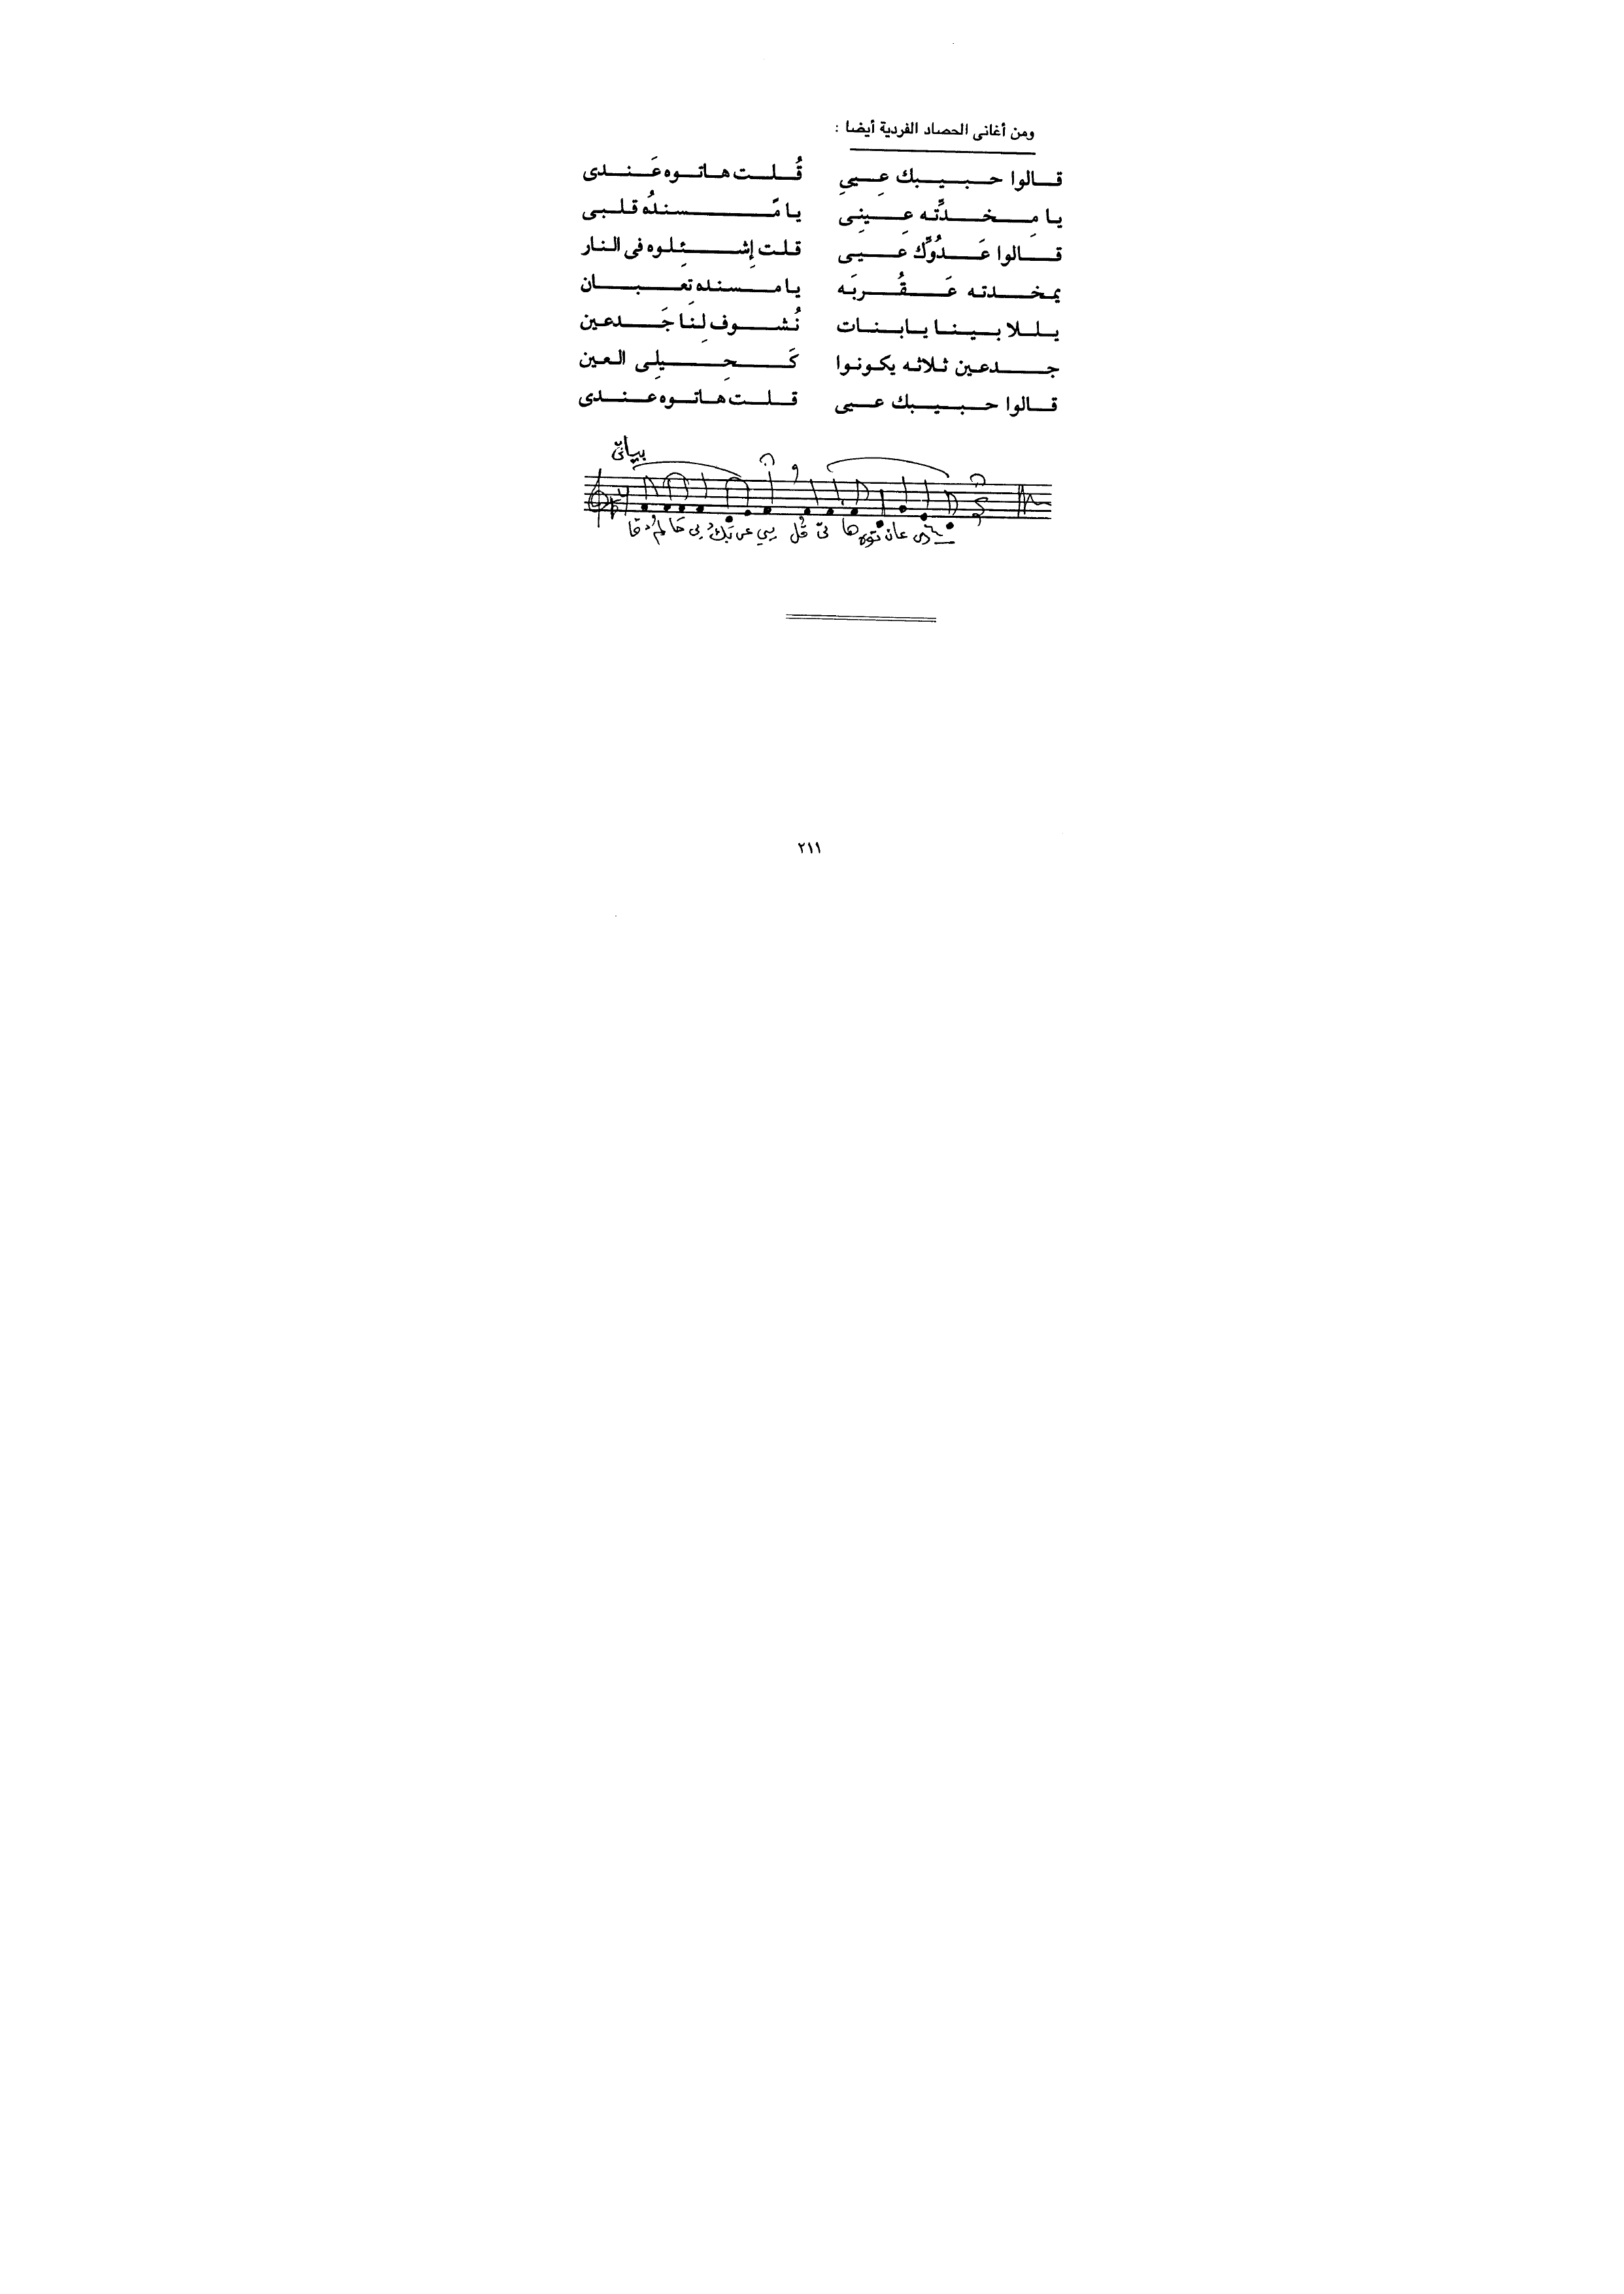 ومن أغانى الحصاد الفردية أيضا :
قالوا حبيبك عِييِ قُلت هاتوه عَندى
يا مِخدِّته عِينِى يا مَّسندُه قلبى
قالوا عَدُوِّك عَيى قلت إِشئِلوه فى النار
يمخدته عَقُربَه يا مسنده تِعبان
يللا بينا يابنات نُشوف لِنا جَدعين
جدعين ثلاثه يكونوا كَحِيلِى العين
قالوا حبيبك عيى قلت هاتوه عندى
بياتى
قا لم حا بى بك عى يي قُل تى ها توه عان دى
٢١١